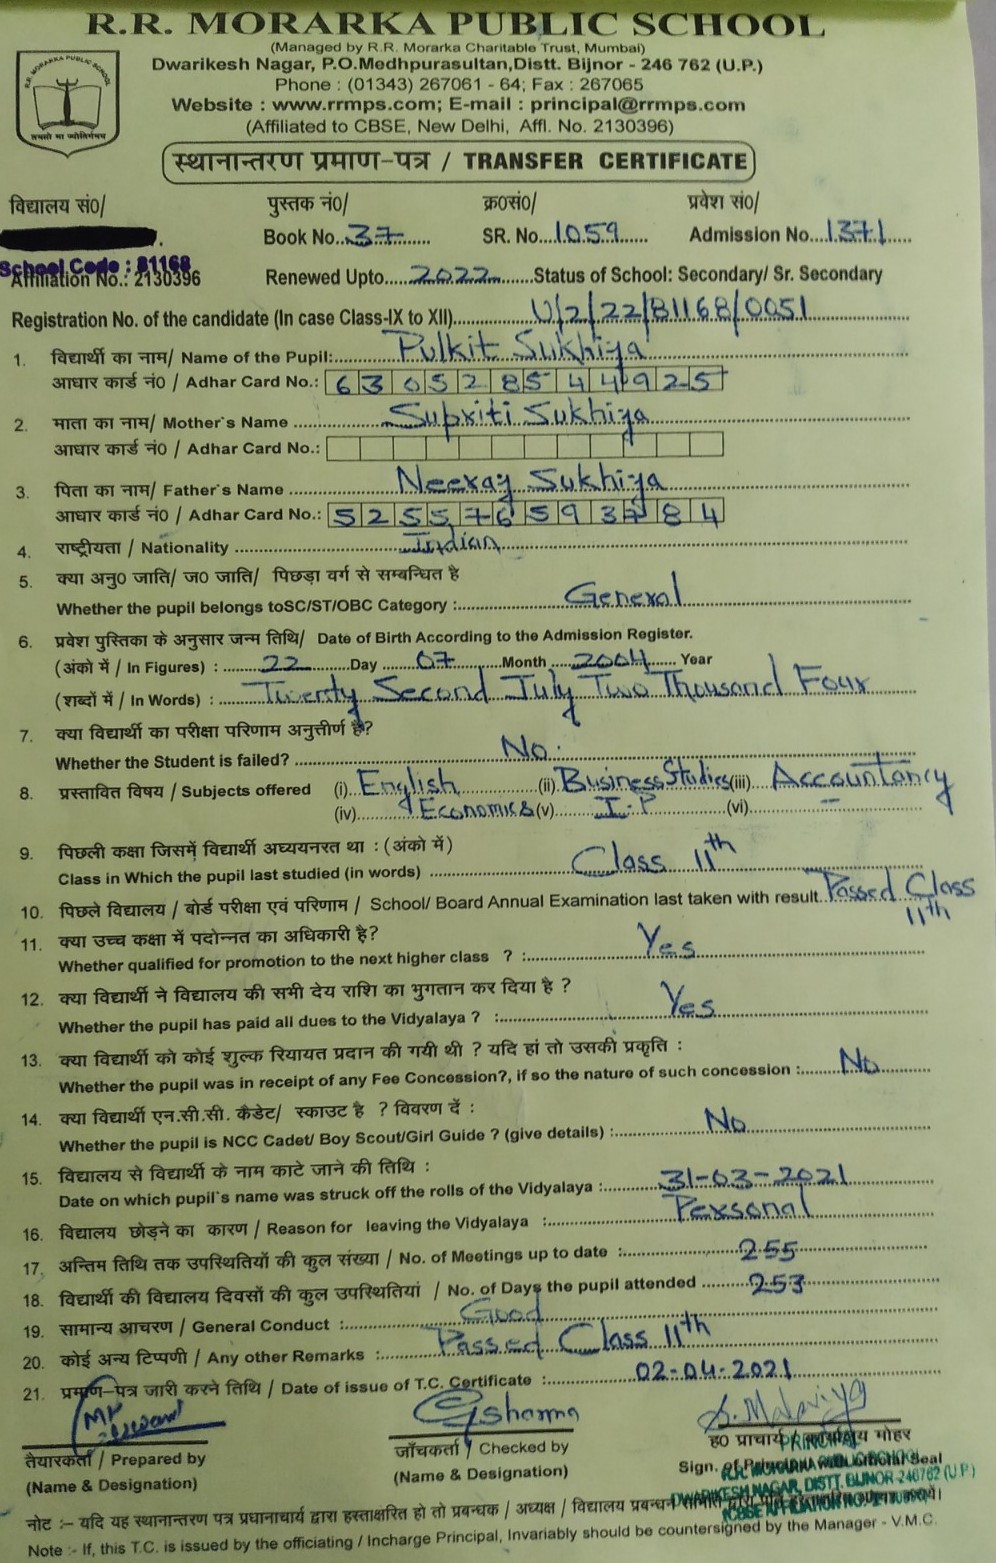 R.R. MORARKA PUBLIC SCHOOL
(Managed by R.R. Morarka Charitable Trust, Mumbai)
Dwarikesh Nagar, P.O.Medhpurasultan,Distt. Bijnor - 246 762 (U.P.)
Phone : (01343) 267061 - 64; Fax : 267065
Website : www.rrmps.com; E-mail : principal@rrmps.com
(Affiliated to CBSE, New Delhi, Affl. No. 2130396)
R.R. MORARKA PUBLIC SCHOOL
तमसो मा ज्योतिर्गमय
स्थानान्तरण प्रमाण-पत्र / TRANSFER CERTIFICATE
विद्यालय सं0/ पुस्तक नं0/ क्र0सं0/ प्रवेश सं0/
Book No. 37 SR. No. 1059 Admission No. 1371
School Code : 81168
Affiliation No.: 2130396 Renewed Upto 2022 Status of School: Secondary/ Sr. Secondary
Registration No. of the candidate (In case Class-IX to XII) U/2/22/81168/0051
1. विद्यार्थी का नाम/ Name of the Pupil: Pulkit Sukhiya
आधार कार्ड नं0 / Adhar Card No.: 6 3 0 5 2 8 5 4 4 9 2 5
2. माता का नाम/ Mother's Name Supriti Sukhiya
आधार कार्ड नं0 / Adhar Card No.:
3. पिता का नाम/ Father's Name Neeraj Sukhiya
आधार कार्ड नं0 / Adhar Card No.: 5 2 5 5 7 6 5 9 3 7 8 4
4. राष्ट्रीयता / Nationality Indian
5. क्या अनु0 जाति/ ज0 जाति/ पिछड़ा वर्ग से सम्बन्धित है
Whether the pupil belongs toSC/ST/OBC Category : General
6. प्रवेश पुस्तिका के अनुसार जन्म तिथि/ Date of Birth According to the Admission Register.
(अंको में / In Figures) : 22 Day 07 Month 2004 Year
(शब्दों में / In Words) : Twenty Second July Two Thousand Four
7. क्या विद्यार्थी का परीक्षा परिणाम अनुत्तीर्ण है?
Whether the Student is failed? No.
8. प्रस्तावित विषय / Subjects offered (i) English (ii) Business Studies (iii) Accountancy
(iv) Economics (v) I.P (vi) -
9. पिछली कक्षा जिसमें विद्यार्थी अध्ययनरत था : (अंको में)
Class in Which the pupil last studied (in words) Class 11th
10. पिछले विद्यालय / बोर्ड परीक्षा एवं परिणाम / School/ Board Annual Examination last taken with result. Passed Class 11th
11. क्या उच्च कक्षा में पदोन्नत का अधिकारी है?
Whether qualified for promotion to the next higher class ? : Yes
12. क्या विद्यार्थी ने विद्यालय की सभी देय राशि का भुगतान कर दिया है ?
Whether the pupil has paid all dues to the Vidyalaya ? : Yes
13. क्या विद्यार्थी को कोई शुल्क रियायत प्रदान की गयी थी ? यदि हां तो उसकी प्रकृति :
Whether the pupil was in receipt of any Fee Concession?, if so the nature of such concession : No
14. क्या विद्यार्थी एन.सी.सी. कैडेट/ स्काउट है ? विवरण दें :
Whether the pupil is NCC Cadet/ Boy Scout/Girl Guide ? (give details) : No
15. विद्यालय से विद्यार्थी के नाम काटे जाने की तिथि :
Date on which pupil's name was struck off the rolls of the Vidyalaya : 31-03-2021
16. विद्यालय छोड़ने का कारण / Reason for leaving the Vidyalaya : Personal
17. अन्तिम तिथि तक उपस्थितियों की कुल संख्या / No. of Meetings up to date : 255
18. विद्यार्थी की विद्यालय दिवसों की कुल उपस्थितियां / No. of Days the pupil attended 253
19. सामान्य आचरण / General Conduct : Good
20. कोई अन्य टिप्पणी / Any other Remarks : Passed Class 11th
21. प्रमाण-पत्र जारी करने तिथि / Date of issue of T.C. Certificate : 02-04-2021
Gsharma S. Malaviya
तैयारकर्ता / Prepared by जाँचकर्ता / Checked by ह0 प्राचार्य / कार्यालय मोहर
(Name & Designation) (Name & Designation) Sign. of Principal with Official Seal
PRINCIPAL
R.R. MORARKA PUBLIC SCHOOL
DWARIKESH NAGAR, DISTT. BIJNOR-246762 (U.P.)
(CBSE AFFILIATION NO. 2130396)
नोट :– यदि यह स्थानान्तरण पत्र प्रधानाचार्य द्वारा हस्ताक्षरित हो तो प्रबन्धक / अध्यक्ष / विद्यालय प्रबन्धन
Note :- If, this T.C. is issued by the officiating / Incharge Principal, Invariably should be countersigned by the Manager - V.M.C.